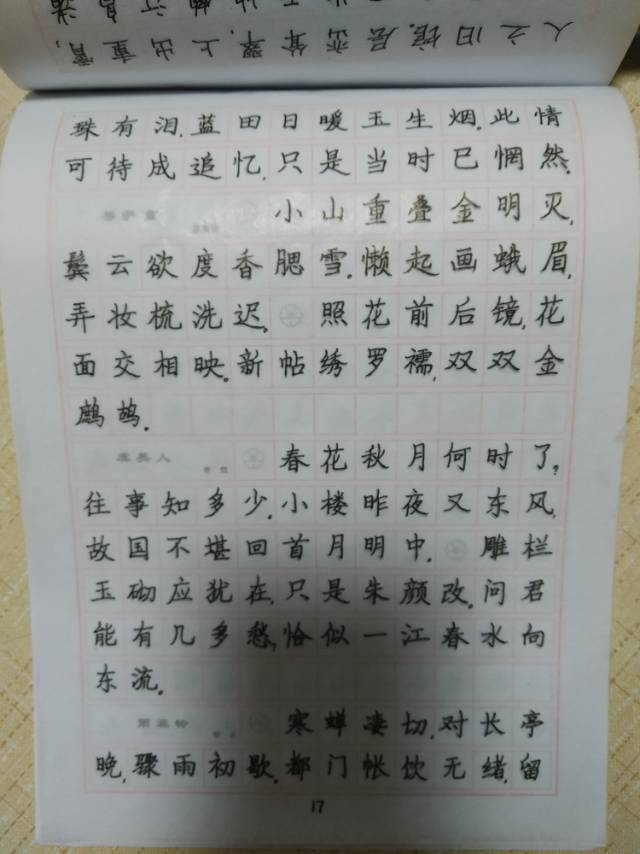 人之旧馆。层峦耸翠，上出重霄；
珠有泪，蓝田日暖玉生烟。此情
可待成追忆，只是当时已惘然。
菩萨蛮 小山重叠金明灭，
鬓云欲度香腮雪。懒起画蛾眉，
弄妆梳洗迟。 照花前后镜，花
面交相映。新帖绣罗襦，双双金
鹧鸪。
虞美人 李煜 春花秋月何时了？
往事知多少。小楼昨夜又东风，
故国不堪回首月明中。 雕栏
玉砌应犹在，只是朱颜改。问君
能有几多愁，恰似一江春水向
东流。
雨霖铃 寒蝉凄切，对长亭
晚，骤雨初歇。都门帐饮无绪，留
17